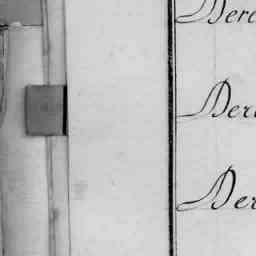 Derc
Der
Der